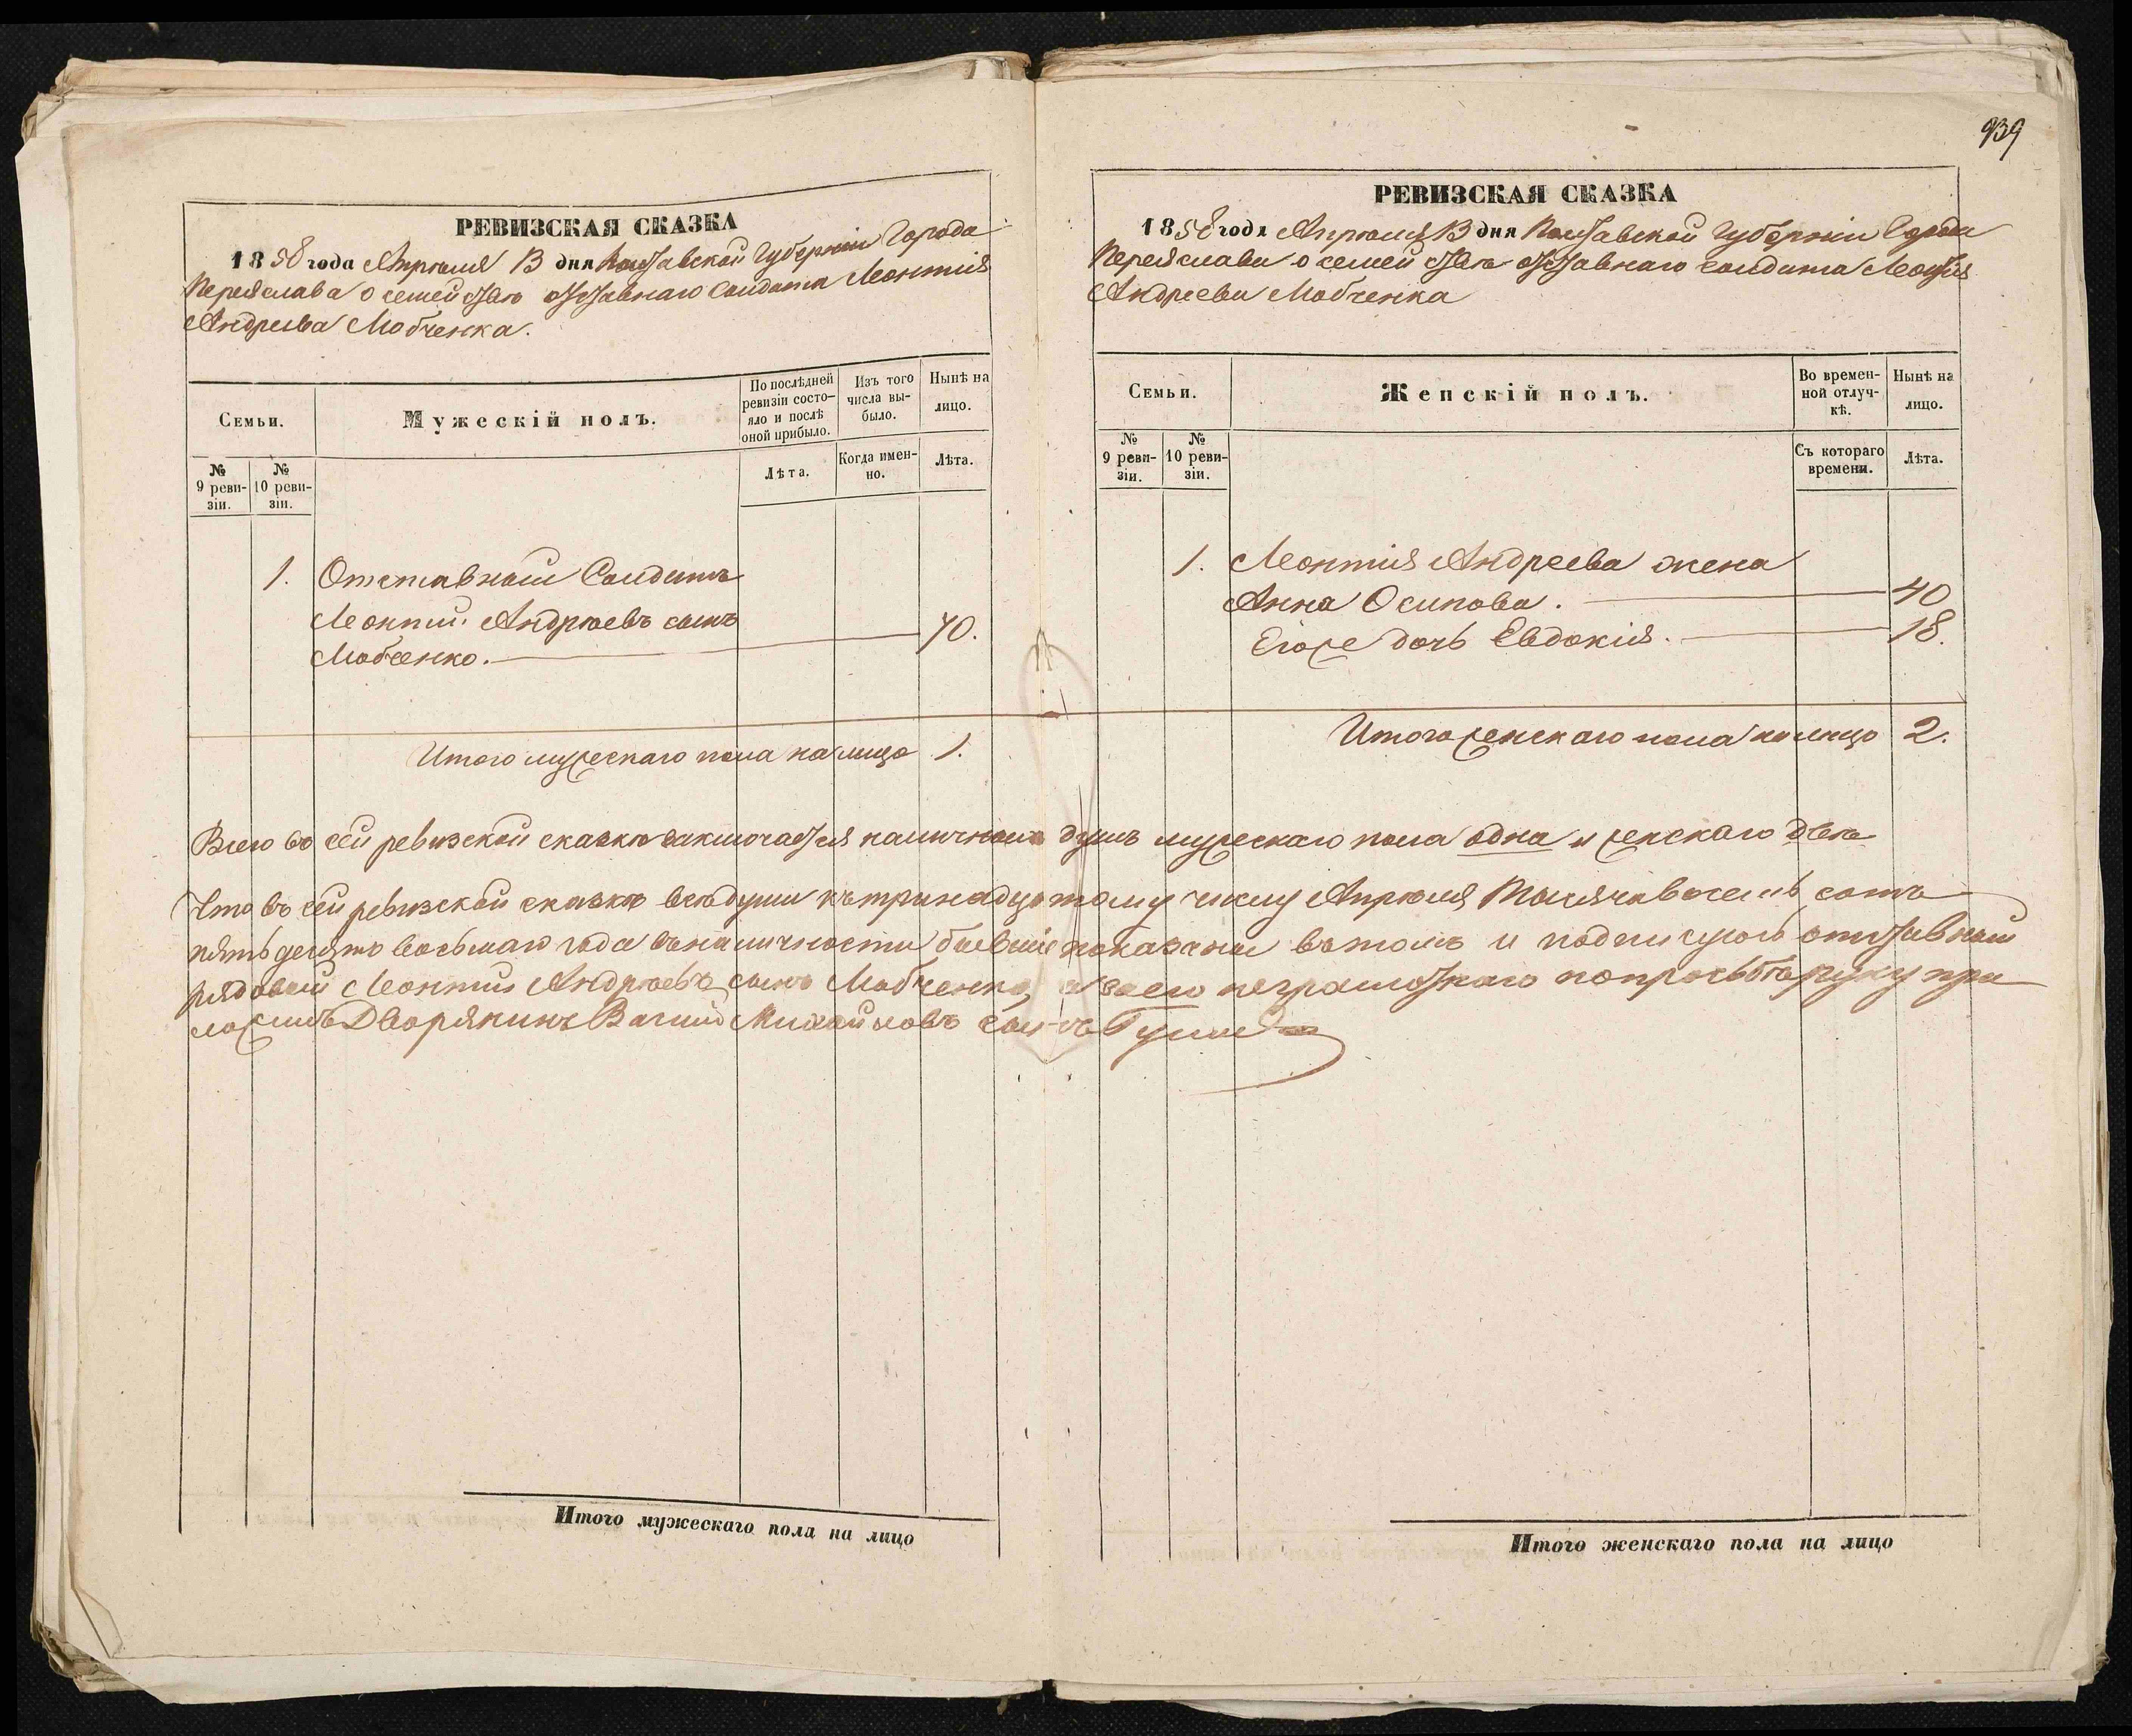 939
РЕВИЗСКАЯ СКАЗКА
1858 года Апрѣля 13 дня Полтавской Губерніи Города
Переяслава о семействѣ отставнаго Солдата Леонтія
Андреева Мовченка.
Семьи.
Мужескій полъ.
По послѣдней ревизіи состояло и послѣ оной прибыло.
Изъ того числа выбыло.
Нынѣ на лицо.
№ 9 ревизіи.
№ 10 ревизіи.
Лѣта.
Когда именно.
Лѣта.
1. Отставный Солдатъ
Леонтій Андрѣевъ сынъ
Мовченко. 70.
Итого мужескаго пола на лицо 1.
РЕВИЗСКАЯ СКАЗКА
1858 года Апрѣля 13 дня Полтавской Губерніи Города
Переяслава о семействѣ отставнаго солдата Леонтія
Андреева Мовченка
Семьи.
Женскій полъ.
Во временной отлучкѣ.
Нынѣ на лицо.
№ 9 ревизіи.
№ 10 ревизіи.
Съ котораго времени.
Лѣта.
1. Леонтія Андреева жена
Анна Осипова. 40
Егоже дочь Евдокія. 18.
Итого женскаго пола на лицо 2.
Всего въ сей ревизской сказкѣ заключается наличныхъ душъ мужескаго пола одна и женскаго двѣ
Что въ сей ревизской сказкѣ всѣ души къ тринадцатому числу Апрѣля тысяча восемь сотъ
пятьдесятъ восьмаго года въ наличности бывшіе показаны въ томъ и подписуюсь отставный
рядовой Леонтій Андрѣевъ сынъ Мовченко, а вмѣсто его неграмотнаго по просьбѣ руку при
ложилъ Дворянинъ Михайловъ сынъ
Итого мужескаго пола на лицо
Итого женскаго пола на лицо